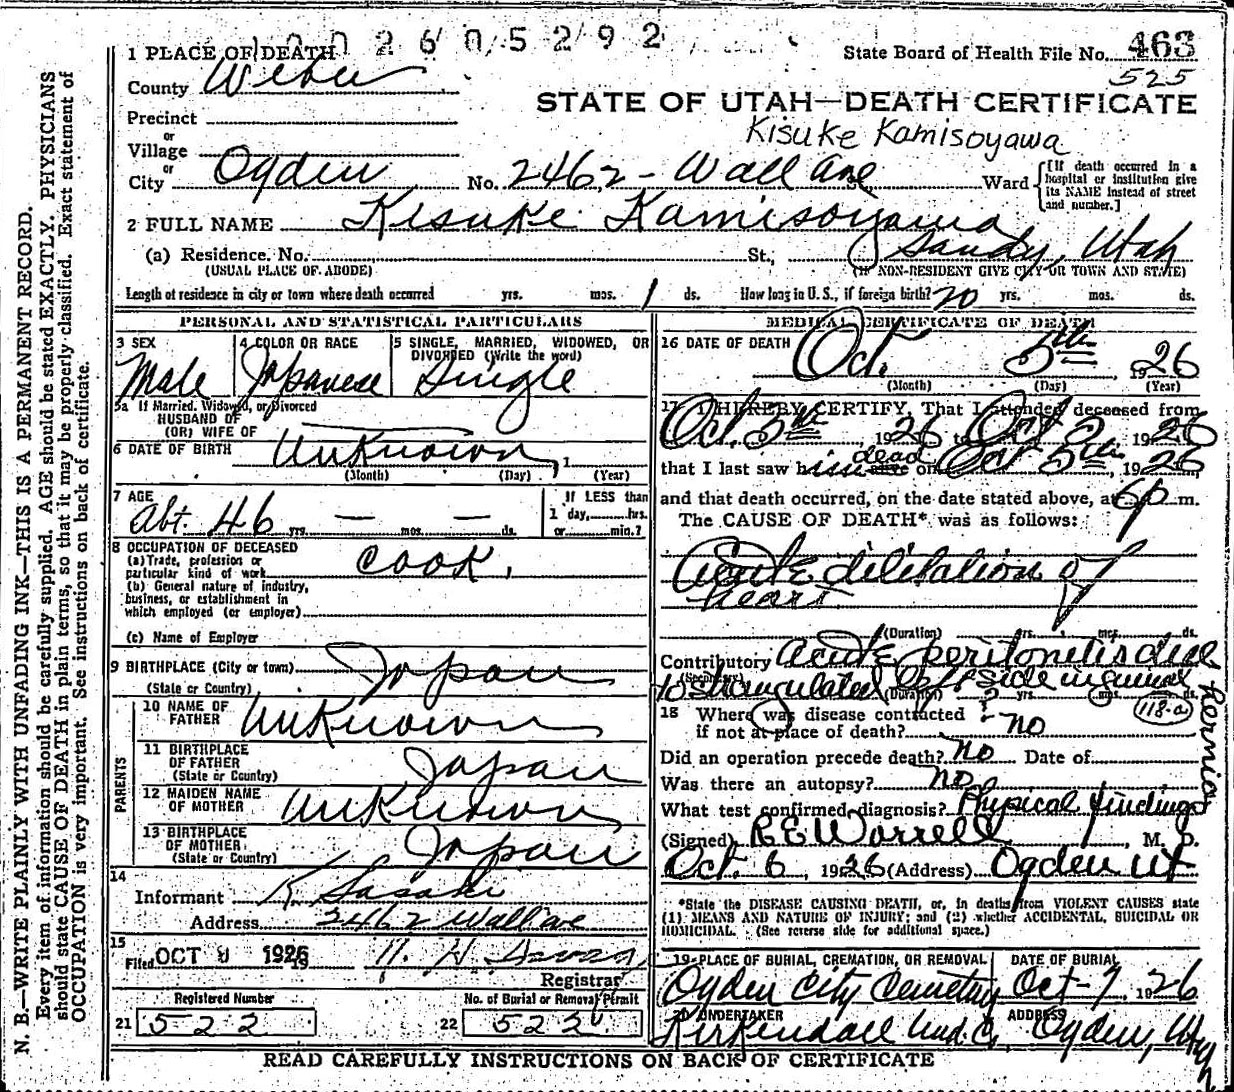 N. B.—WRITE PLAINLY WITH UNFADING INK—THIS IS A PERMANENT RECORD.
Every item of information should be carefully supplied. AGE should be stated EXACTLY. PHYSICIANS
should state CAUSE OF DEATH in plain terms, so that it may be properly classified. Exact statement of
OCCUPATION is very important. See instructions on back of certificate.
2605292
1 PLACE OF DEATH
State Board of Health File No. 463
525
County Weber
STATE OF UTAH—DEATH CERTIFICATE
Precinct
Kisuke Kamisoyawa
or
Village
or
City Ogden No. 2462 - Wall Ave St. Ward
[If death occurred in a hospital or institution give its NAME instead of street and number.]
2 FULL NAME Kisuke Kamisoyawa
(a) Residence. No. St., Sandy, Utah
(USUAL PLACE OF ABODE) (IF NON-RESIDENT GIVE CITY OR TOWN AND STATE)
Length of residence in city or town where death occurred yrs. mos. 1 ds. How long in U.S., if foreign birth? 20 yrs. mos. ds.
PERSONAL AND STATISTICAL PARTICULARS
3 SEX Male
4 COLOR OR RACE Japanese
5 SINGLE, MARRIED, WIDOWED, OR DIVORCED (Write the word) Single
5a If Married, Widowed, or Divorced
HUSBAND OF
(OR) WIFE OF
6 DATE OF BIRTH Unknown, 1
(Month) (Day) (Year)
7 AGE Abt. 46 yrs. — mos. — ds.
If LESS than
1 day, hrs.
or min.?
8 OCCUPATION OF DECEASED
(a) Trade, profession or
particular kind of work cook.
(b) General nature of industry,
business, or establishment in
which employed (or employer)
(c) Name of Employer
9 BIRTHPLACE (City or town) Japan
(State or Country)
PARENTS
10 NAME OF FATHER Unknown
11 BIRTHPLACE OF FATHER (State or Country) Japan
12 MAIDEN NAME OF MOTHER Unknown
13 BIRTHPLACE OF MOTHER (State or Country) Japan
14
Informant K. Sasaki
Address 2462 Wall ave
15
Filed OCT 9 1926 19
Registrar
Registered Number
21 522
No. of Burial or Removal Permit
22 522
MEDICAL CERTIFICATE OF DEATH
16 DATE OF DEATH Oct. 5th, 1926
(Month) (Day) (Year)
17 I HEREBY CERTIFY, That I attended deceased from
Oct. 5th, 1926 to Oct 5, 1926
that I last saw him alive dead on Oct 5th, 1926
and that death occurred, on the date stated above, at 6 p m.
The CAUSE OF DEATH* was as follows:
Acute dilitation of
heart
(Duration) yrs. mos. ds.
Contributory Acute peritonitis due
(Secondary) to strangulated left side inguinal hernia
(Duration) ? yrs. mos. ds.
118-a
18 Where was disease contracted
if not at place of death? ? no
Did an operation precede death? no Date of
Was there an autopsy? no
What test confirmed diagnosis? Physical findings
(Signed) R E Worrell, M. D.
Oct. 6, 1926 (Address) Ogden Ut
*State the DISEASE CAUSING DEATH, or, in deaths from VIOLENT CAUSES state
(1) MEANS AND NATURE OF INJURY; and (2) whether ACCIDENTAL, SUICIDAL OR
HOMICIDAL. (See reverse side for additional space.)
19 PLACE OF BURIAL, CREMATION, OR REMOVAL Ogden City Cemetery
DATE OF BURIAL Oct-7, 1926
20 UNDERTAKER Kirkendall Und. Co,
ADDRESS Ogden, Utah
READ CAREFULLY INSTRUCTIONS ON BACK OF CERTIFICATE